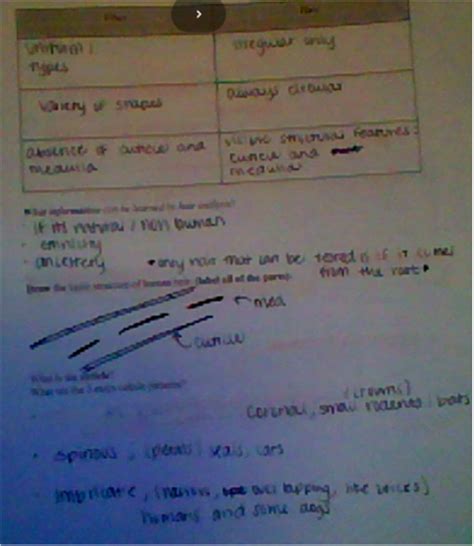 Fiber Hair
uniform / irregular only
types
variety of shapes always circular
absence of cuticle and visible structural features:
medulla cuticle and medulla
What information can be learned by hair analysis?
if its natural / non human
- ethnicity
- ancestery • only hair that can be tested is if it comes
from the root •
Draw the basic structure of human hair (label all of the parts).
med
cuticle
What is the
What are the 3 main cuticle patterns?
(crowns)
Coronal, small rodents / bats
• spinous, (petals) seals, cats
• imbricate, (narrow, over lapping, like bricks)
humans and some dogs